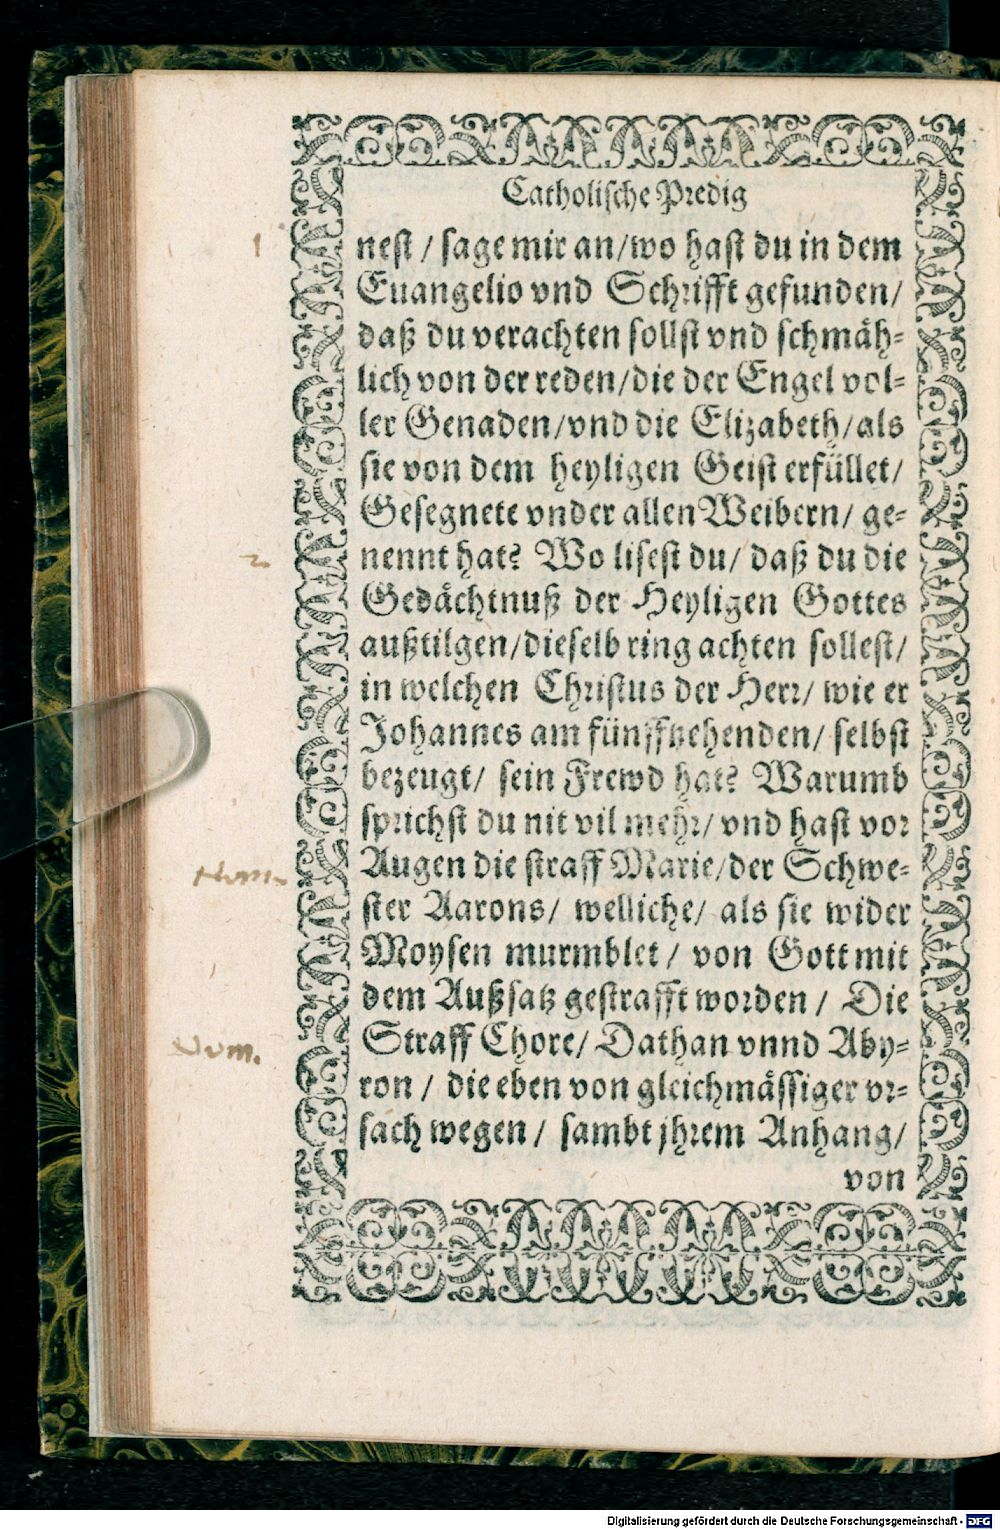 Catholische Predig
1
nest / sage mir an/wo hast du in dem
Euangelio vnd Schrifft gefunden/
daß du verachten sollst vnd schmäh-
lich von der reden/die der Engel vol-
ler Genaden/vnd die Elizabeth/als
sie von dem heyligen Geist erfüllet/
Gesegnete vnder allen Weibern/ ge-
2
nennt hat? Wo lisest du/ daß du die
Gedächtnuß der Heyligen Gottes
außtilgen/dieselb ring achten sollest/
in welchen Christus der Herr/ wie er
Johannes am fünffzehenden/ selbst
bezeugt/ sein Frewd hat? Warumb
sprichst du nit vil mehr/ vnd hast vor
Num.
Augen die straff Marie/der Schwe-
ster Aarons/ welliche/ als sie wider
Moysen murmblet / von Gott mit
dem Außsatz gestrafft worden / Die
Num.
Straff Chore/ Dathan vnnd Aby-
ron / die eben von gleichmässiger vr-
sach wegen / sambt jhrem Anhang/
von
Digitalisierung gefördert durch die Deutsche Forschungsgemeinschaft - DFG